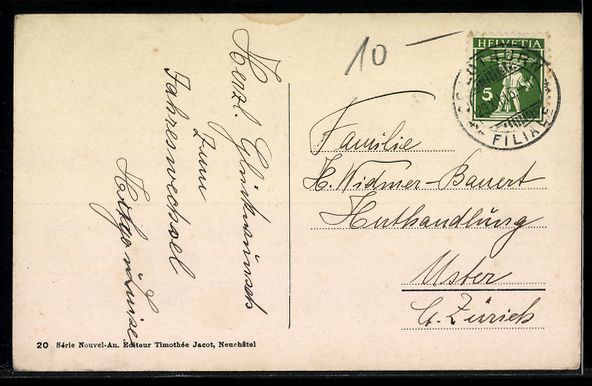 10 —
HELVETIA
5
FILIALE
Familie
H. Widmer-Bauert
Huthandlung
Uster
Ct. Zürich
Herzl. Glückwunsch
zum
Jahreswechsel
Luise
20 Série Nouvel-An. Editeur Timothée Jacot, Neuchâtel